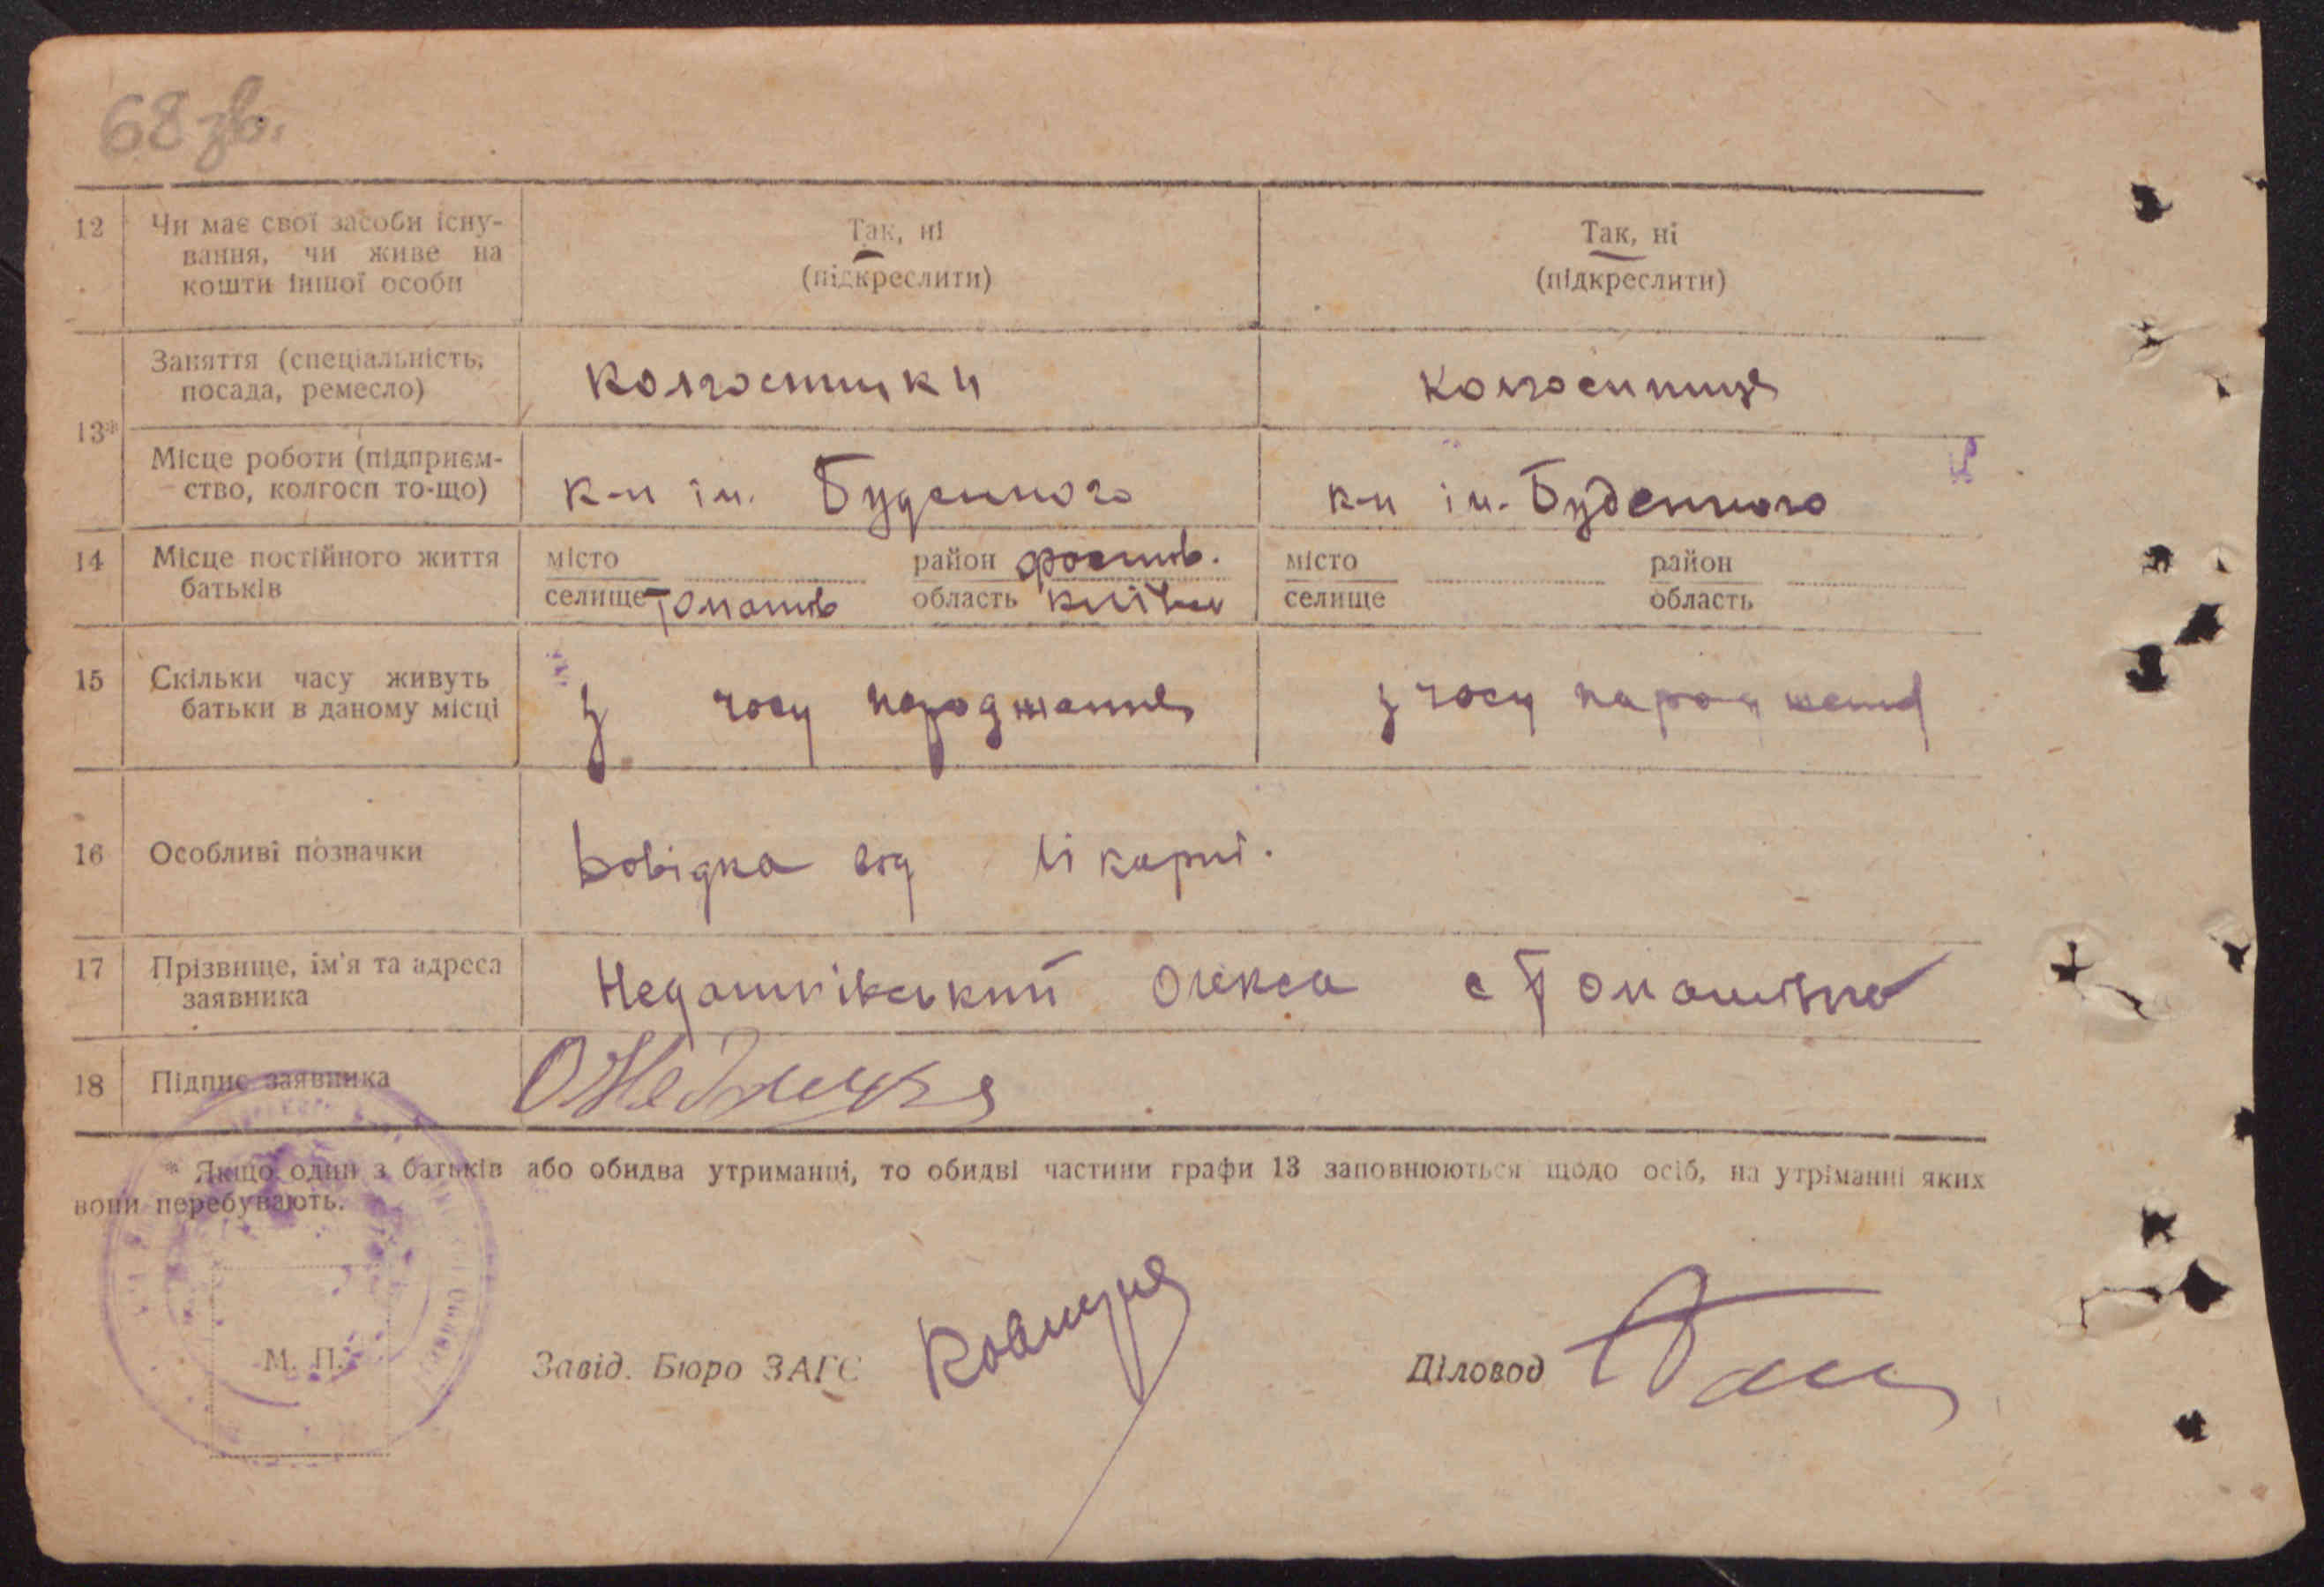 68 зв.
12 Чи має свої засоби існу-
вання, чи живе на
кошти іншої особи
Так, ні
(підкреслити)
Так, ні
(підкреслити)
13*
Заняття (спеціальність,
посада, ремесло)
колгоспники
колгоспниця
Місце роботи (підприєм-
ство, колгосп то-що)
к-п ім. Буденного
к-п ім. Буденного
14 Місце постійного життя
батьків
місто район фастів.
селище Томашів область київськ
місто район
селище область
15 Скільки часу живуть
батьки в даному місці
з часу народження
з часу народження
16 Особливі позначки
Довідка від лікарні.
17 Прізвище, ім'я та адреса
заявника
Недашківський Олекса с Томашівка
18 Підпис заявника
* Якщо один з батьків або обидва утриманці, то обидві частини графи 13 заповнюються щодо осіб, на утріманні яких
вони перебувають.
М. П.
Завід. Бюро ЗАГС
Діловод